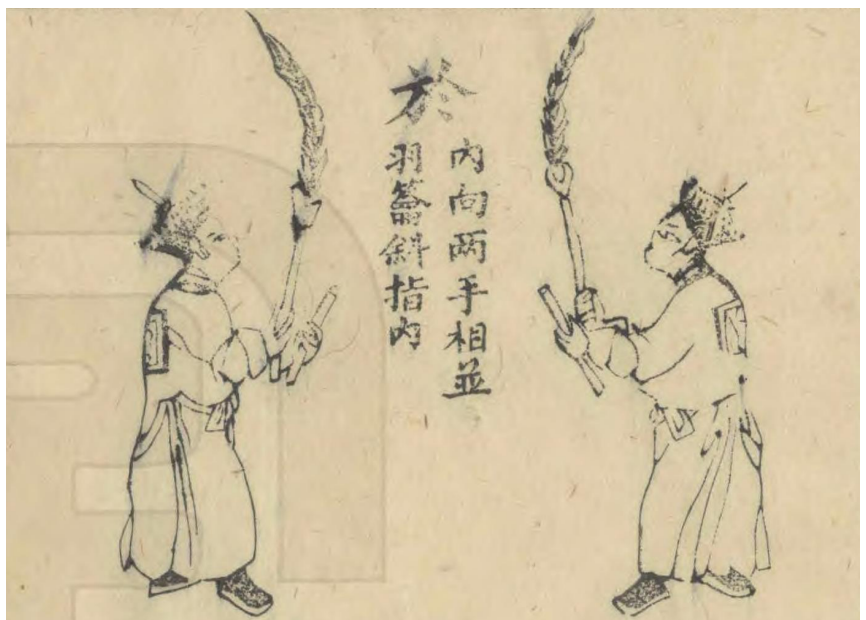 於
內向兩手相並
羽籥斜指內